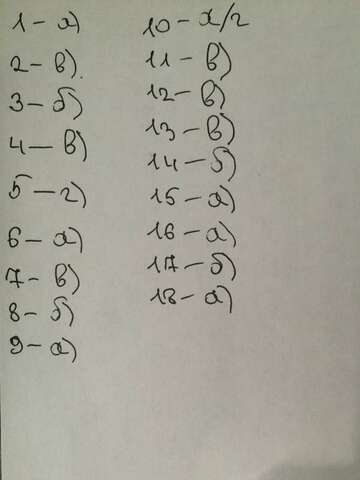 1 – а)
2 – в)
3 – б)
4 – в)
5 – г)
6 – а)
7 – в)
8 – б)
9 – а)
10 – а/г
11 – в)
12 – в)
13 – в)
14 – б)
15 – а)
16 – а)
17 – б)
18 – а)